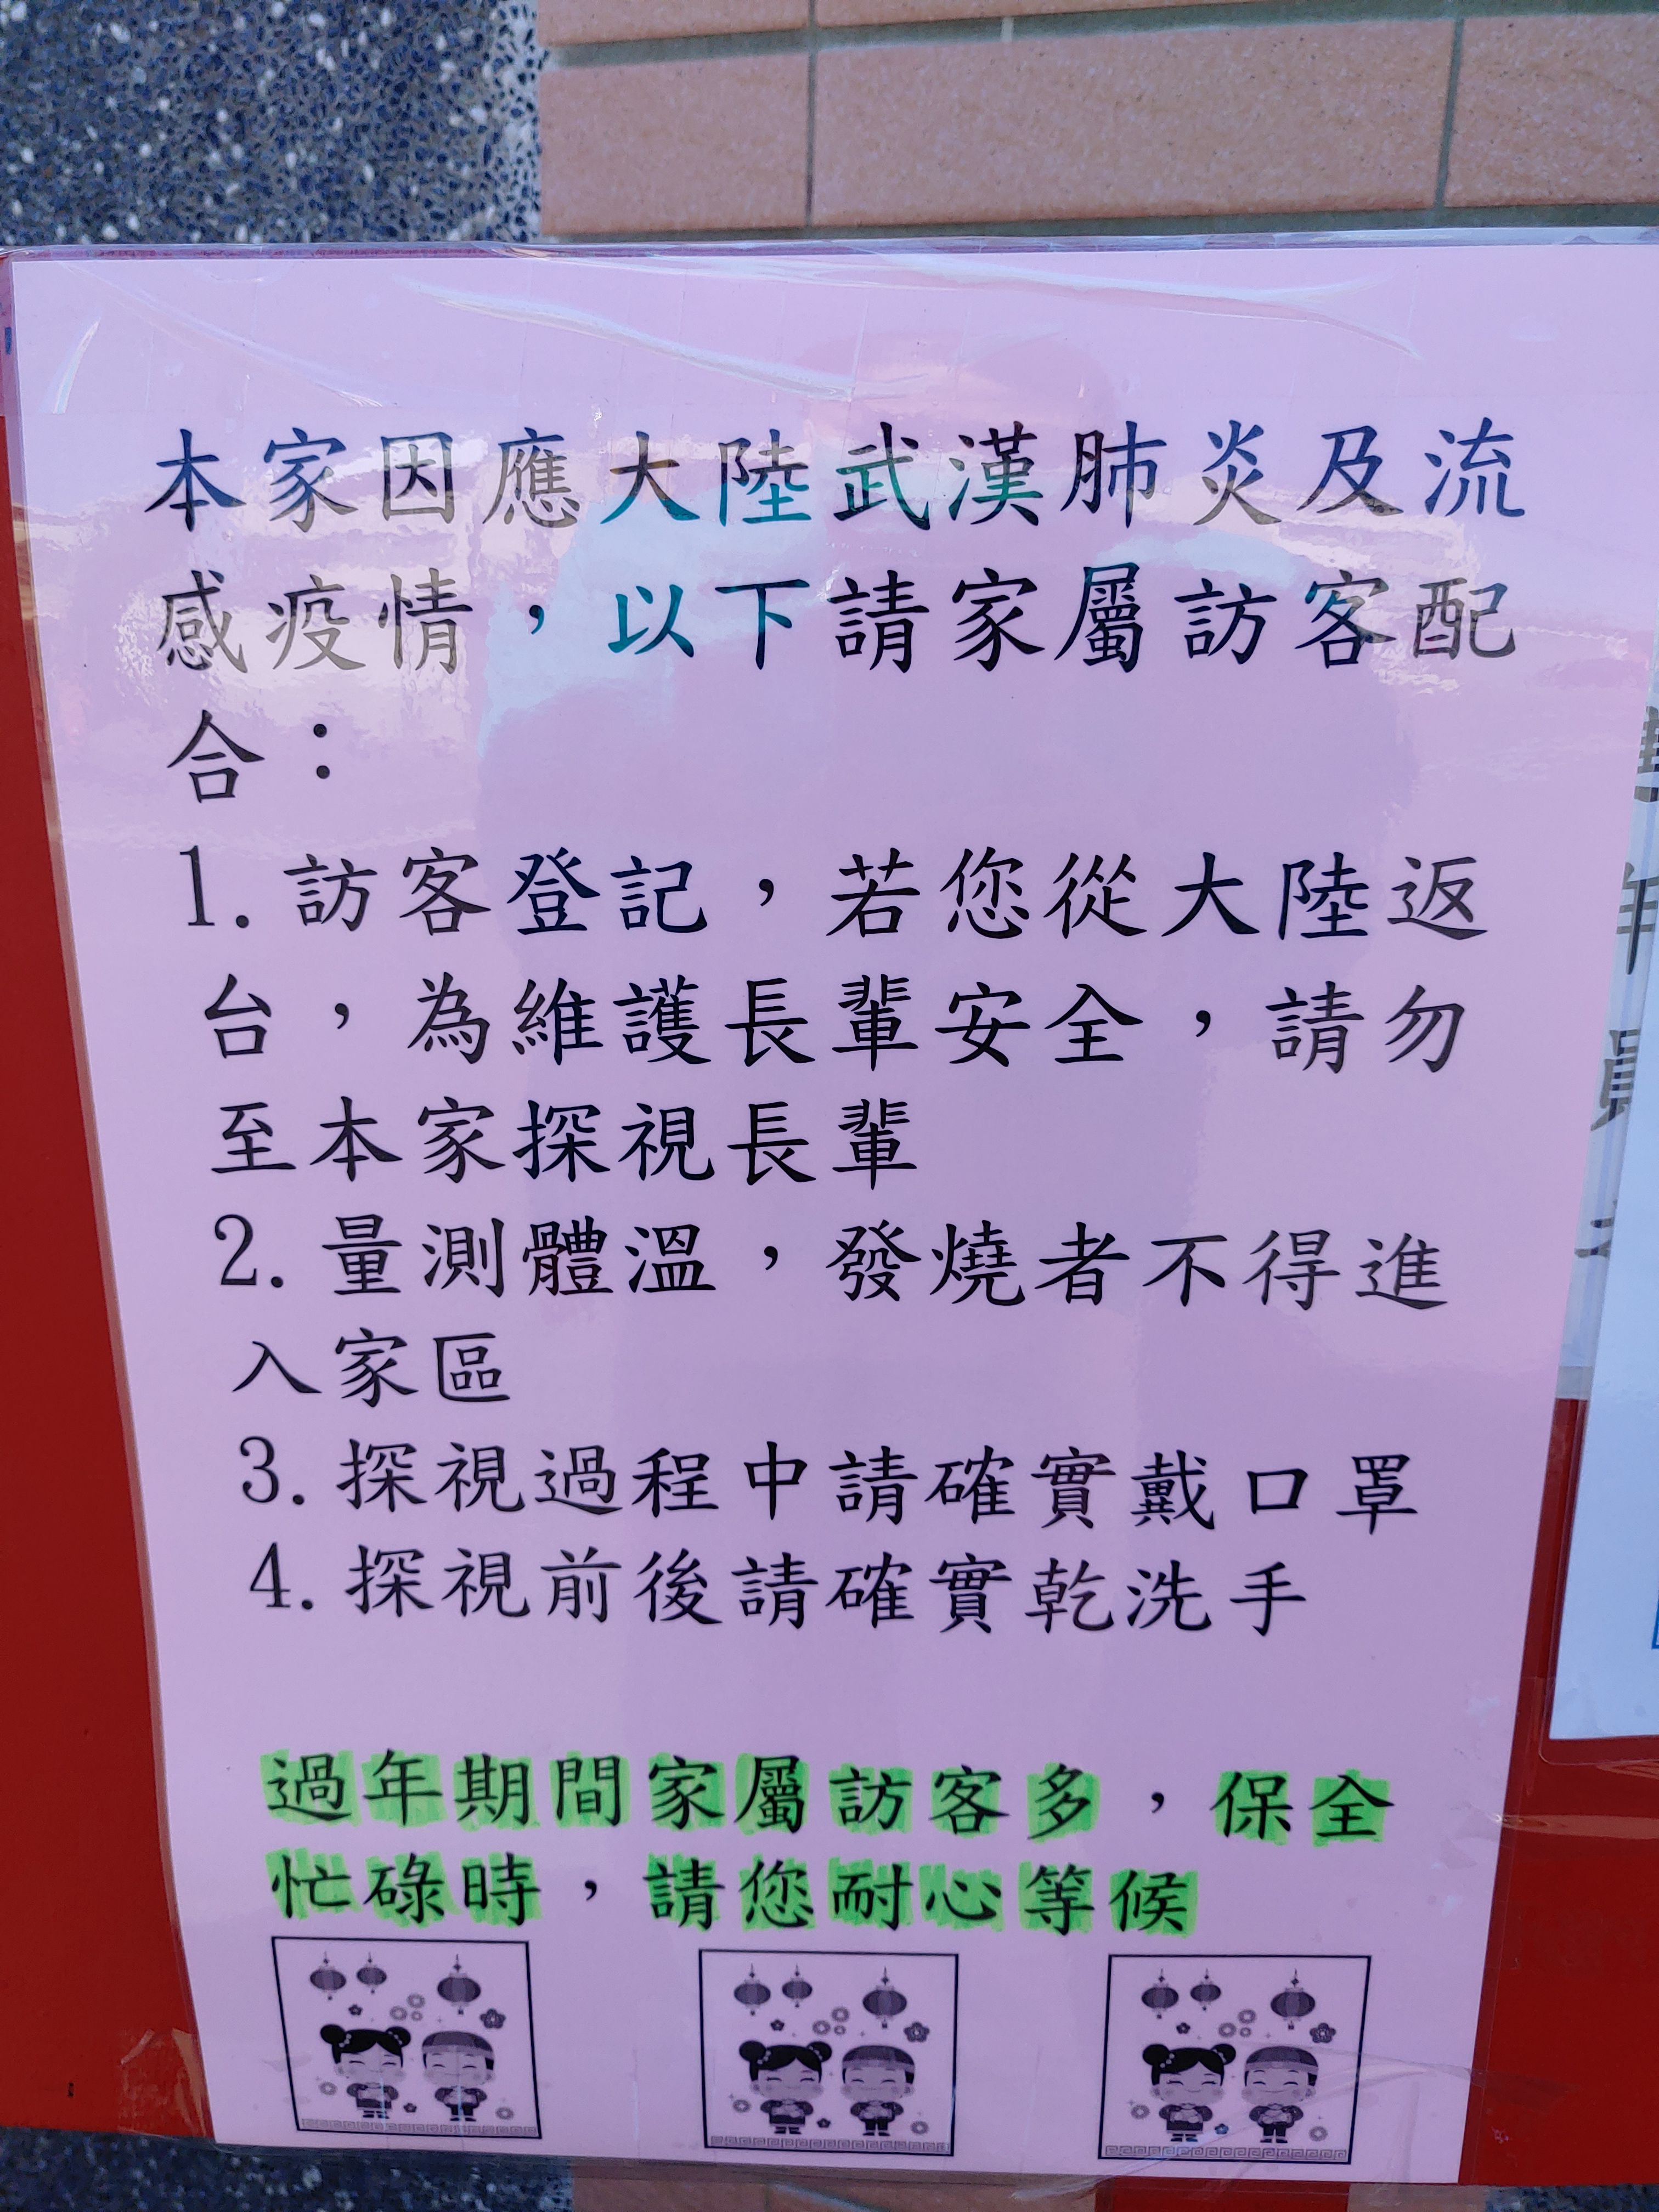 本家因應大陸武漢肺炎及流
感疫情，以下請家屬訪客配
合：
1.訪客登記，若您從大陸返
台，為維護長輩安全，請勿
至本家探視長輩
2.量測體溫，發燒者不得進
入家區
3.探視過程中請確實戴口罩
4.探視前後請確實乾洗手
過年期間家屬訪客多，保全
忙碌時，請您耐心等候